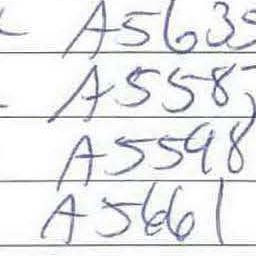 A5635
A5587
A5598
A5661